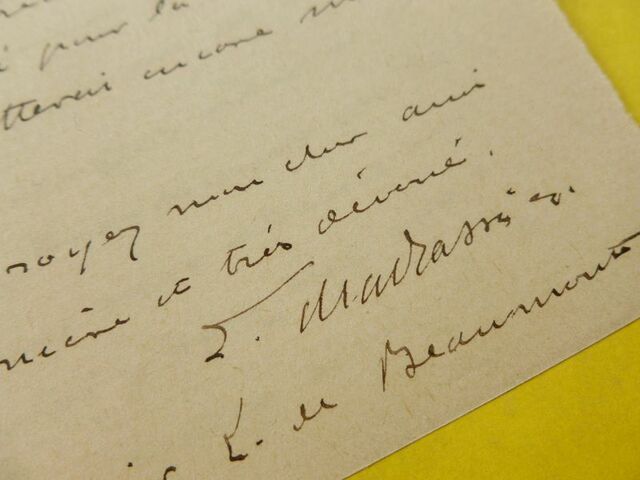 pour la
encore
royez mon cher ami
et très dévoué.
L. Madrassi
R. de Beaumont